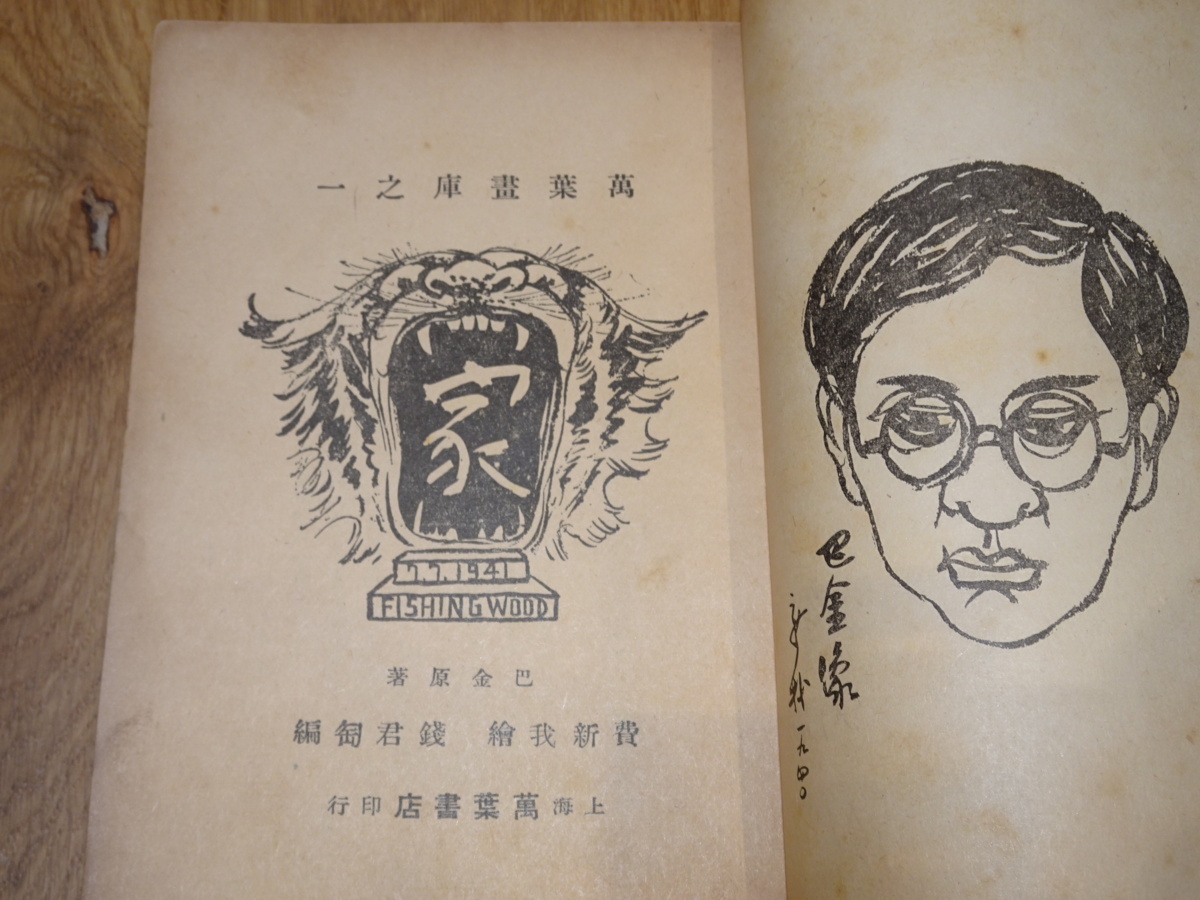 萬葉畫庫之一
家
7.7.1941
FISHINGWOOD
巴金原著
費新我繪 錢君匋編
上海萬葉書店印行
巴金像
新我 一九四〇